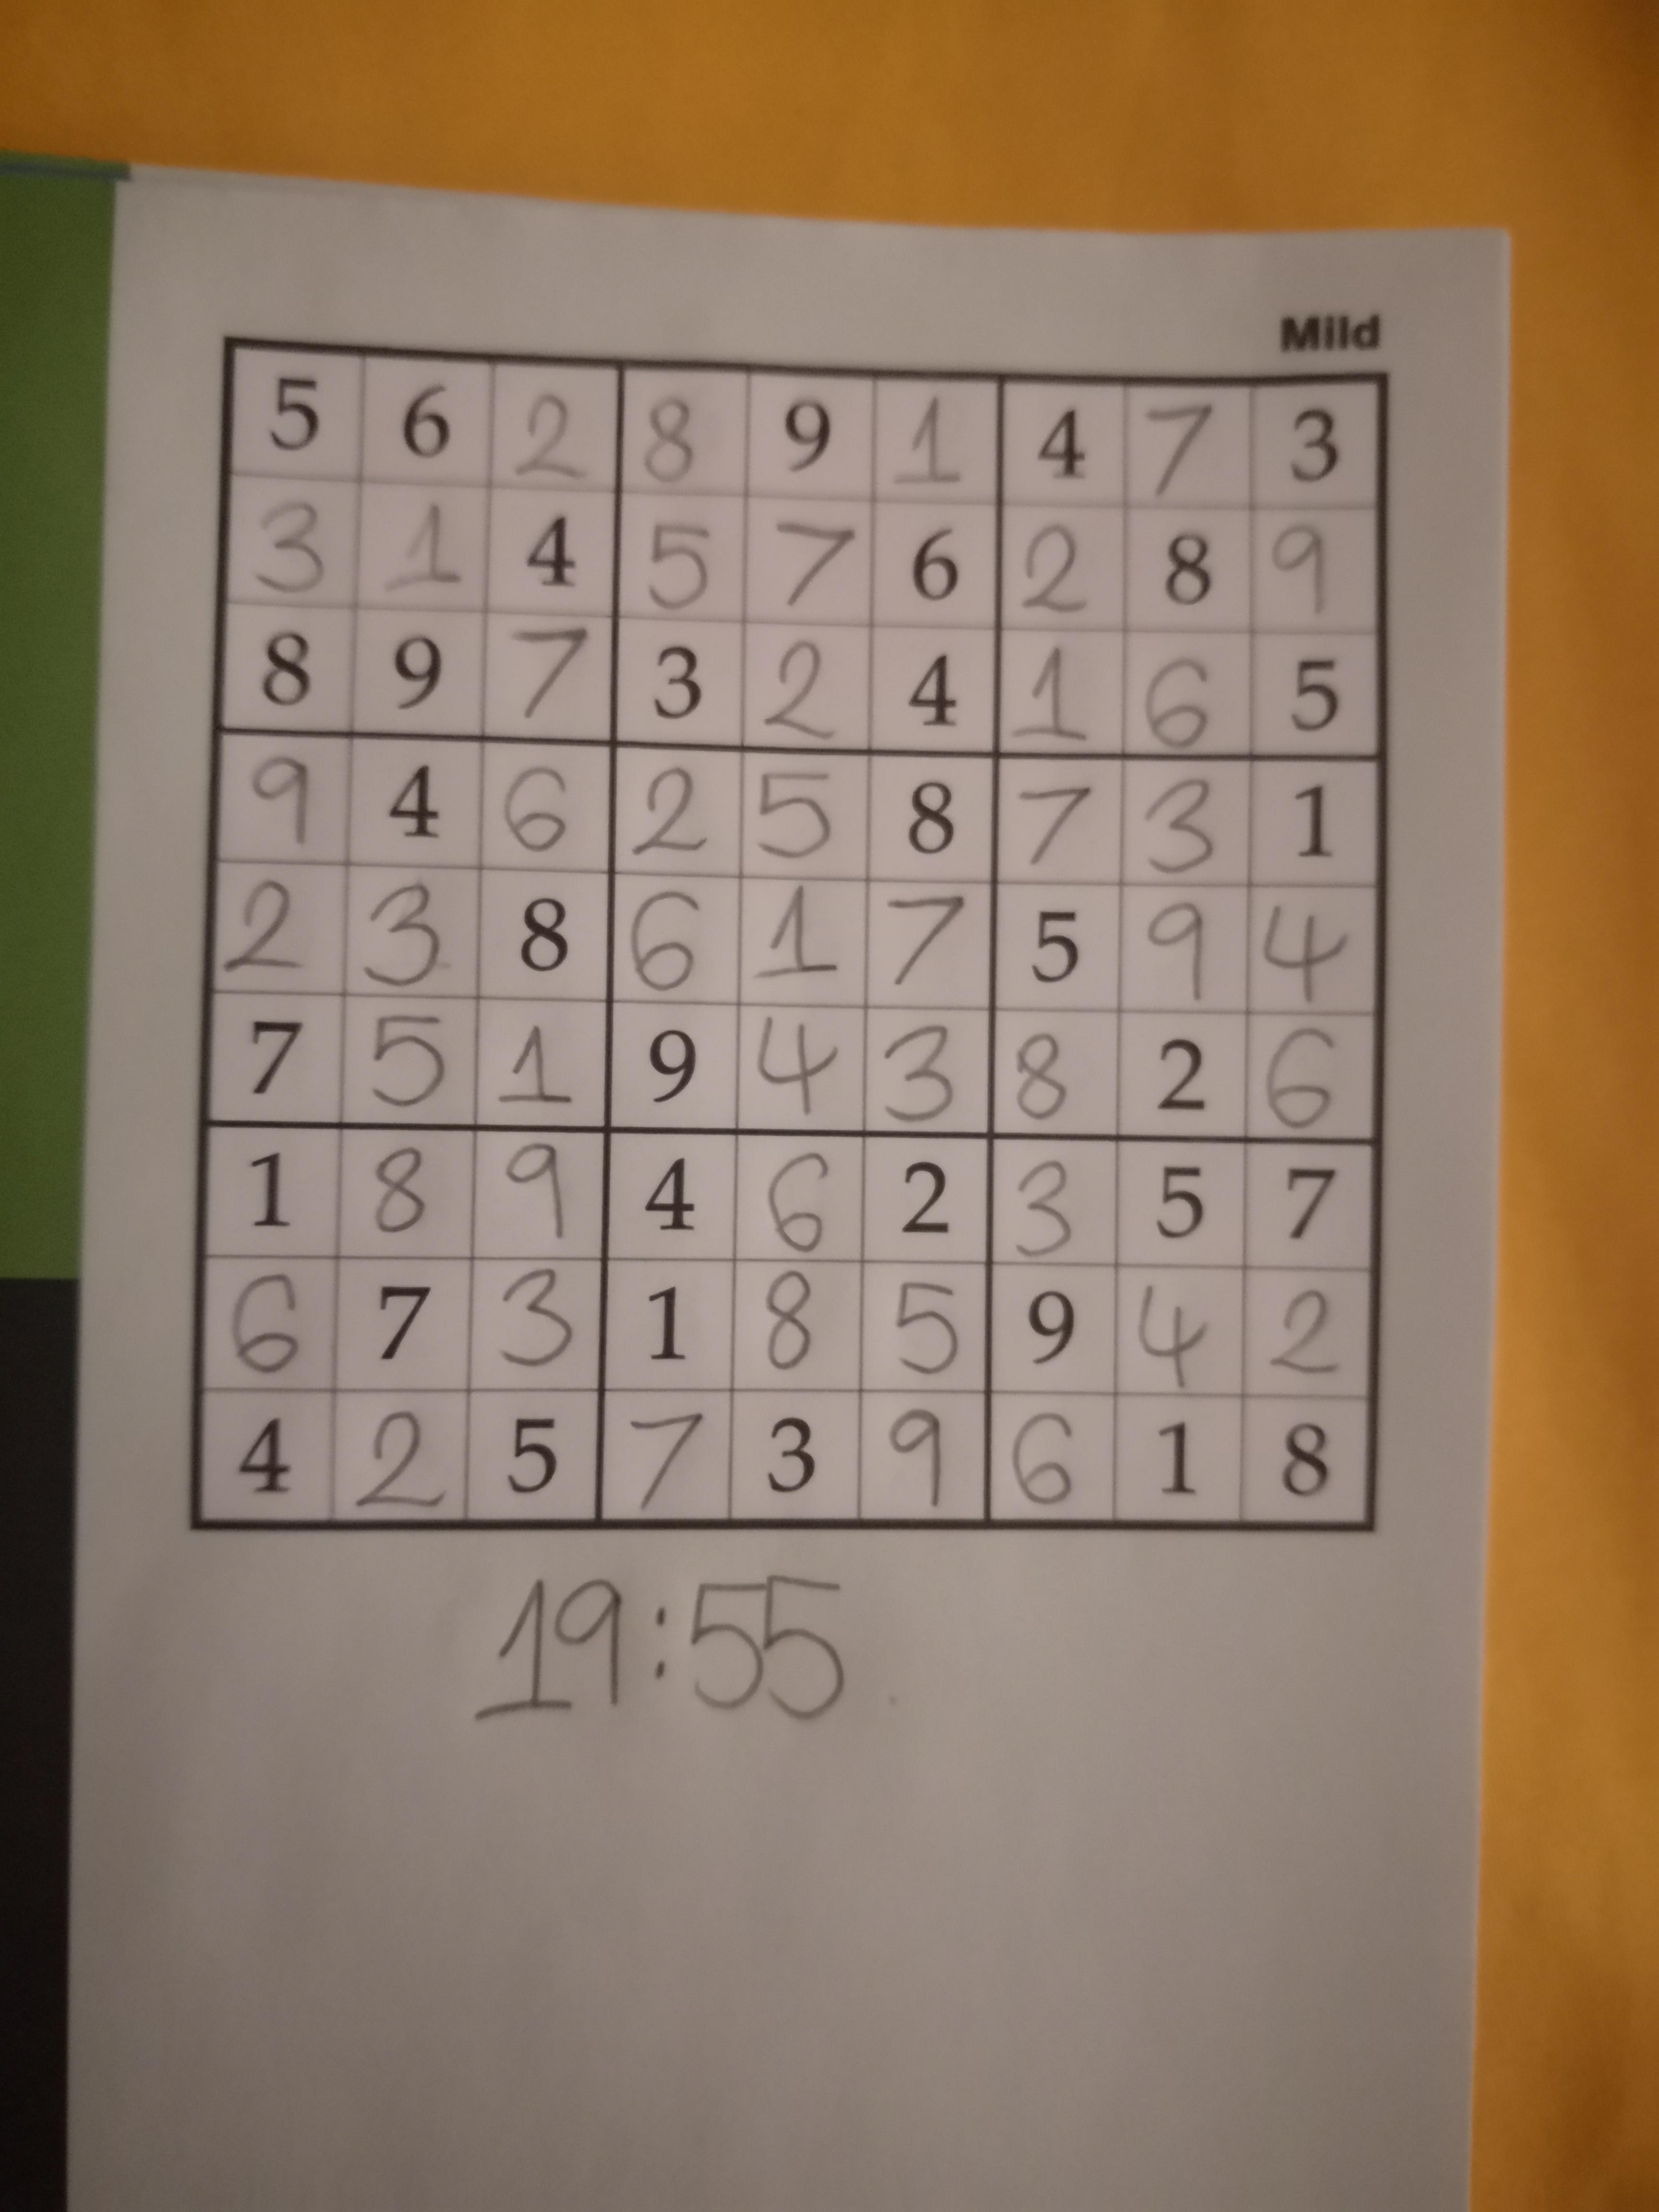 Mild
5 6 2 8 9 1 4 7 3
3 1 4 5 7 6 2 8 9
8 9 7 3 2 4 1 6 5
9 4 6 2 5 8 7 3 1
2 3 8 6 1 7 5 9 4
7 5 1 9 4 3 8 2 6
1 8 9 4 6 2 3 5 7
6 7 3 1 8 5 9 4 2
4 2 5 7 3 9 6 1 8
19:55